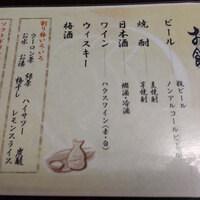 お飲
ビール
瓶ビール
ノンアルコールビール
焼酎
麦焼酎
芋焼酎
日本酒
燗酒・冷酒
ワイン
ハウスワイン(赤・白)
ウィスキー
梅酒
割り物いろいろ
ウーロン茶
緑茶
ハイサワー
炭酸
お水
お湯
梅干し
レモンスライス
ソフト